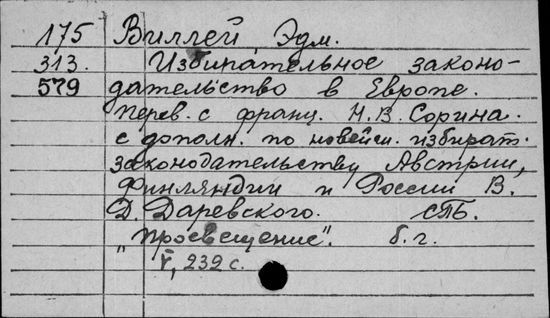 175 Виллей Эдм.
313. Избирательное законо-
579 дательство в Европе.
Перев. с франц. Н.В. Сорина.
с дополн. по новейш. избират.
законодательству Австрии,
Финляндии и России В.
Д. Даревского. СПБ.
"Просвещение". б. г.
V, 232 с.